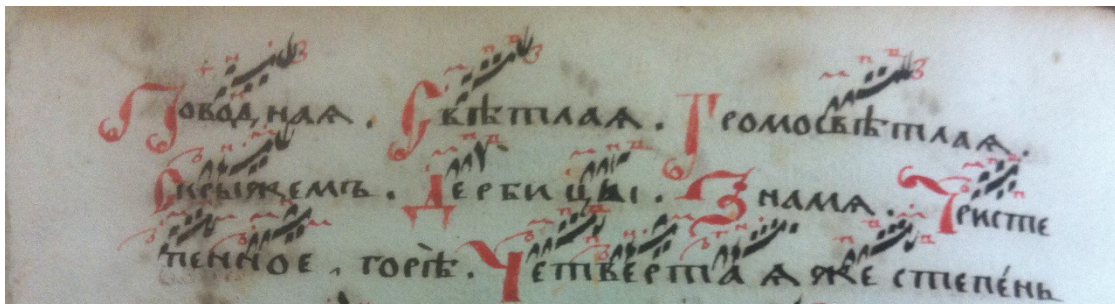 Поводная . Свѣтлая . Громосвѣтлая .
Скрыжемъ . Дербицы . Знамя . Тристе
пенное , горѣ . Четвертая же степе́нь